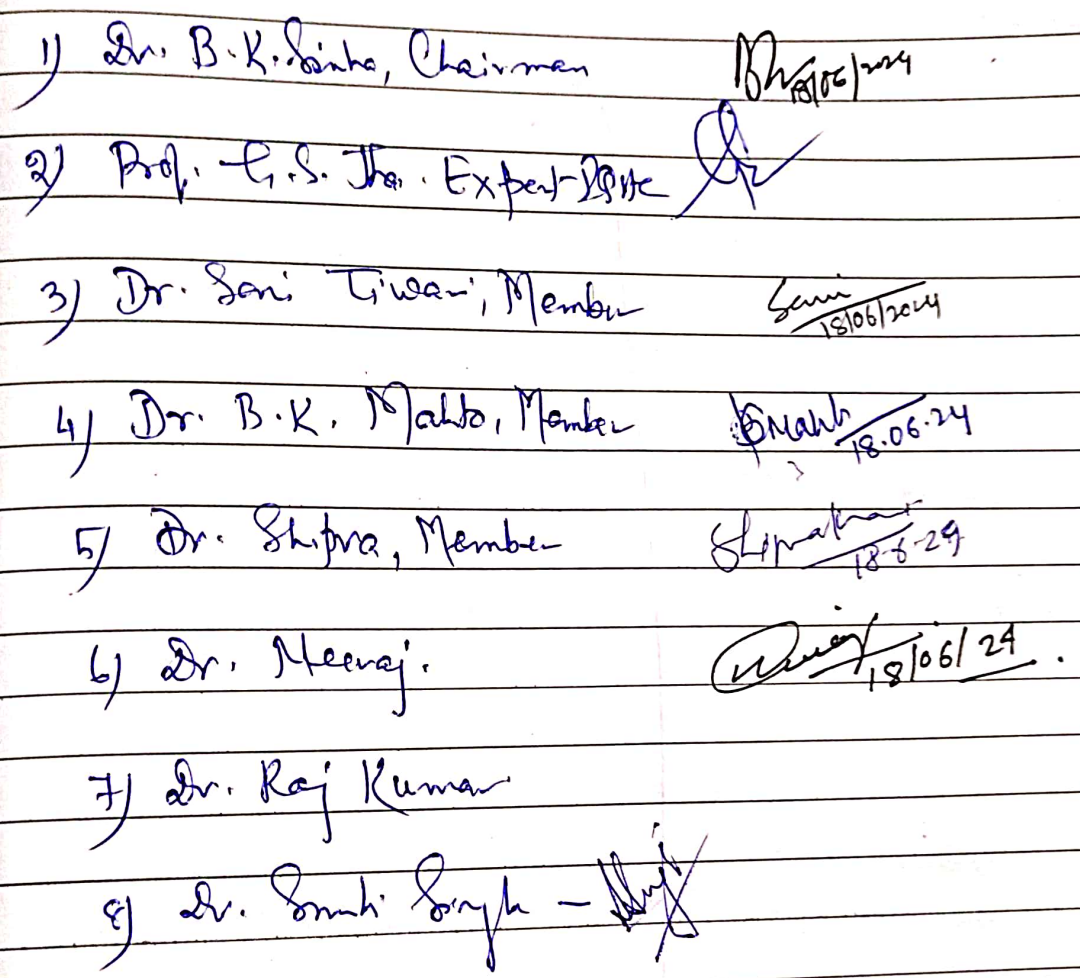 1) Dr. B.K. Sinha, Chairman 18/06/2024
2) Prof. G.S. Jha. Expert
3) Dr. Sani Tiwari, Member Sani 18/06/2024
4) Dr. B.K. Mahto, Member BMahto 18.06.24
5) Dr. Shipra, Member 18-6-24
6) Dr. Neeraj. 18/06/24.
7) Dr. Raj Kumar
8) Dr. Smriti Singh -